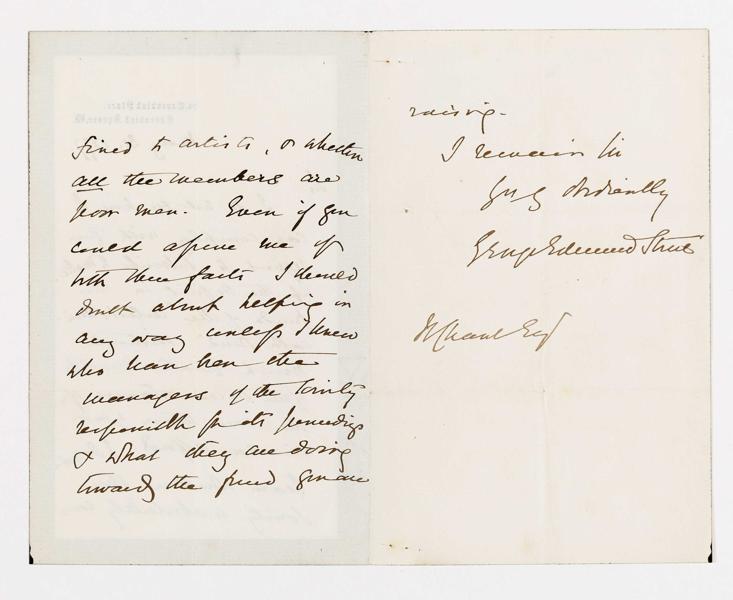 fined to artists, or whether
all the members are
poor men. Even if you
could assure me of
both these facts I should
doubt about helping in
any way unless I knew
who have been the
managers of the Society
responsible for its proceedings
& what they are doing
towards the fund you are
raising.
I remain Sir
Yrs obediently
George Edmund Street
Esq